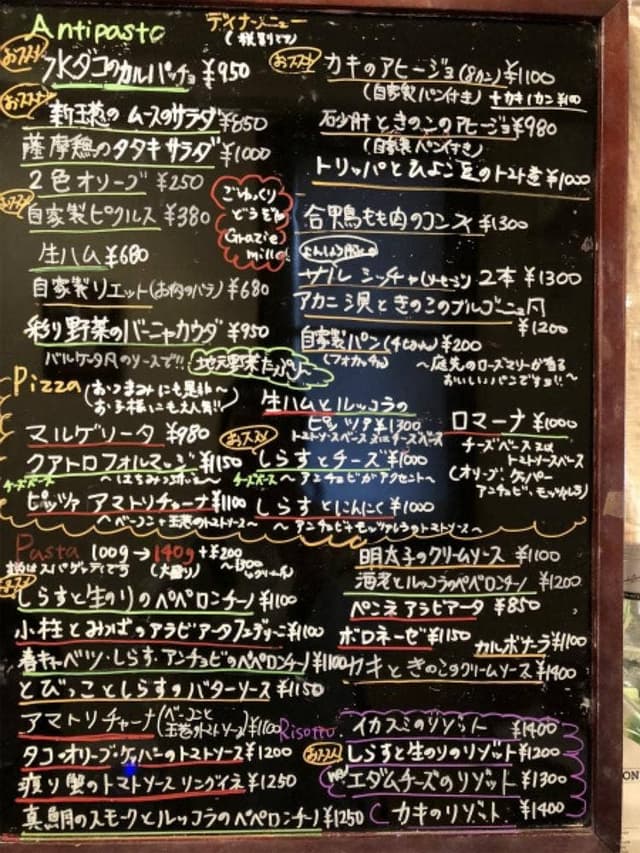 Antipasto
ディナーメニュー
(税別です)
おススメ
水ダコのカルパッチョ ¥950
おススメ
新玉葱のムースのサラダ ¥850
薩摩鶏のタタキサラダ ¥1000
2色オリーブ ¥250
おススメ
自家製ピクルス ¥380
生ハム ¥680
自家製リエット(お肉のパテ) ¥680
彩り野菜のバーニャカウダ ¥950
バルケッタ風のソースで!!
地元野菜たっぷり
ごゆっくり
どうぞ
Grazie
mille!
おススメ
カキのアヒージョ(8カン) ¥1100
(自家製パン付き) +カキ1カン¥100
砂肝ときのこのアヒージョ ¥980
(自家製パン付き)
トリッパとひよこ豆のトマト煮 ¥1000
合鴨もも肉のコンフィ ¥1300
サルシッチャ(ソーセージ) 2本 ¥1300
アカニシ貝ときのこのブルゴーニュ風
¥1200
自家製パン(4cut) ¥200
(フォカッチャ)
〜庭先のローズマリーが香る
おいしいパンですヨ!!〜
Pizza
(おつまみにも是非〜
お子様にも大人気!!)
マルゲリータ ¥980
クアトロフォルマッジ ¥1150
チーズベース 〜はちみつ添え〜
ピッツァ アマトリチャーナ ¥1100
〜ベーコンと玉葱のトマトソース〜
生ハムとルッコラの
ピッツァ ¥1300
トマトソースベース 又はチーズベース
おススメ
しらすとチーズ ¥1000
チーズベース 〜アンチョビがアクセント〜
しらすとにんにく ¥1000
〜アンチョビとモッツァレラのトマトソース〜
ロマーナ ¥1000
チーズベース 又は
トマトソースベース
(オリーブ・ケッパー
アンチョビ、モッツァレラ)
Pasta 100g→140g +¥200
(大盛り)
麺はスパゲッティです
おススメ
しらすと生のりのペペロンチーノ ¥1100
小柱とみつばのアラビアータフェデリーニ ¥1100
春キャベツ・しらす・アンチョビのペペロンチーノ ¥1100
とびっことしらすのバターソース ¥1150
アマトリチャーナ(ベーコンと玉葱のトマトソース) ¥1100
タコ・オリーブ・ケッパーのトマトソース ¥1200
渡り蟹のトマトソースリングイネ ¥1250
真鯛のスモークとルッコラのペペロンチーノ ¥1250
明太子のクリームソース ¥1100
海老とルッコラのペペロンチーノ ¥1200
ペンネアラビアータ ¥850
ボロネーゼ ¥1150
カルボナーラ ¥1100
カキときのこのクリームソース ¥1400
Risotto
イカスミのリゾット ¥1400
おススメ
しらすと生のりのリゾット ¥1200
new
エダムチーズのリゾット ¥1300
カキのリゾット ¥1400